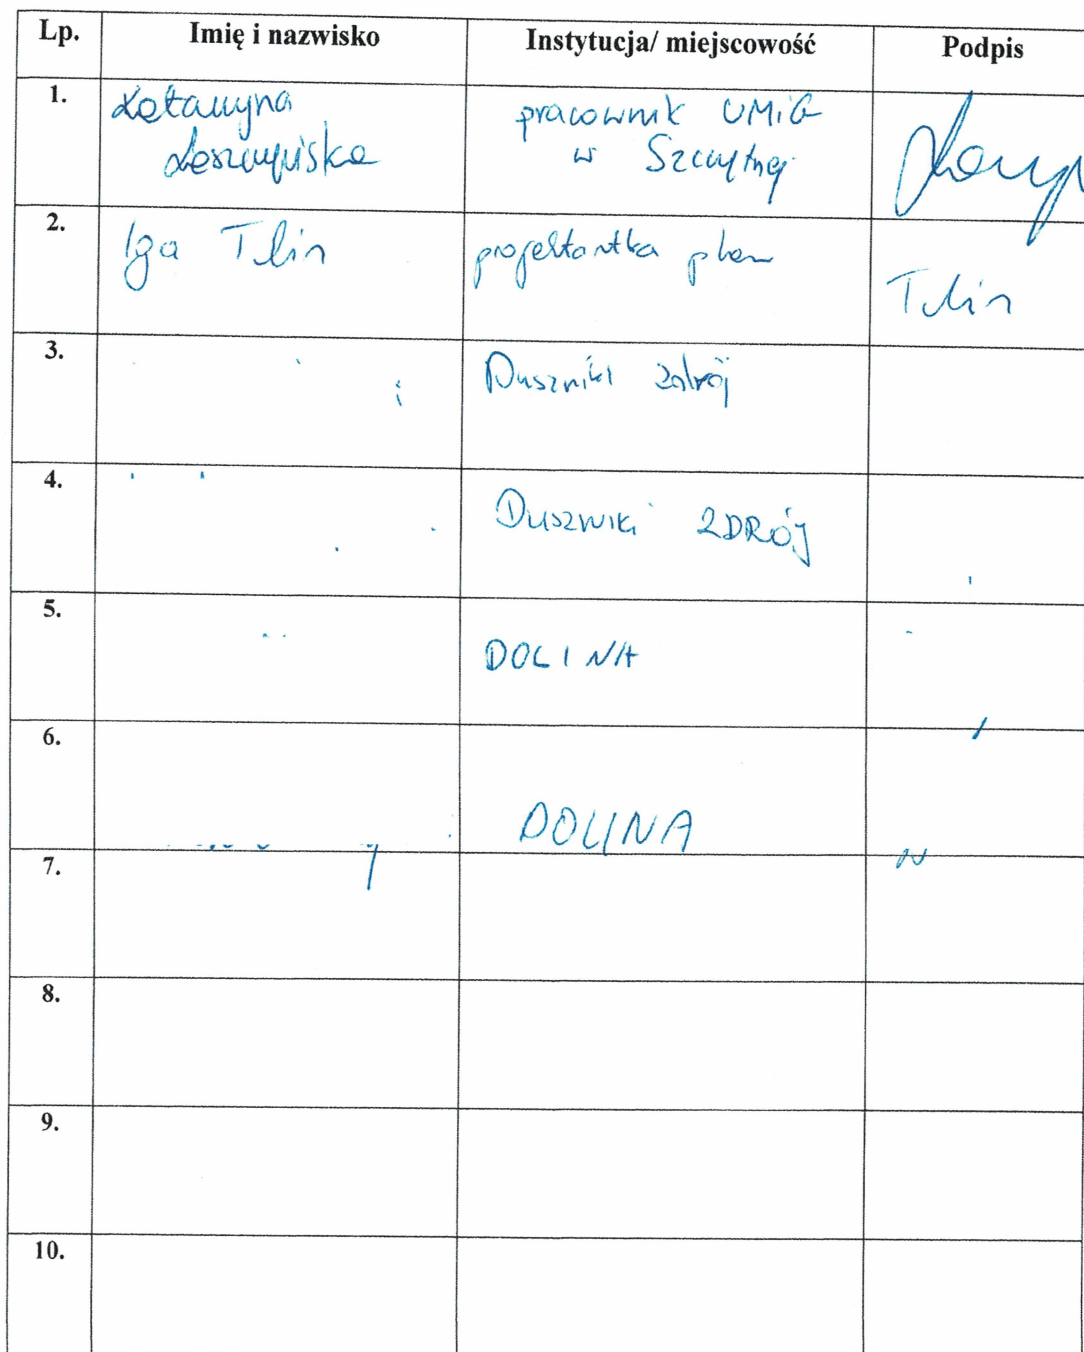 Lp. Imię i nazwisko Instytucja/ miejscowość Podpis
1. Katarzyna pracownik UMiG
w Szczytnej
2. Iga Tlin projektantka planu Tlin
3. Duszniki Zdrój
4. Duszniki ZDRÓJ
5. DOLINA
6. DOLINA
7.
8.
9.
10.